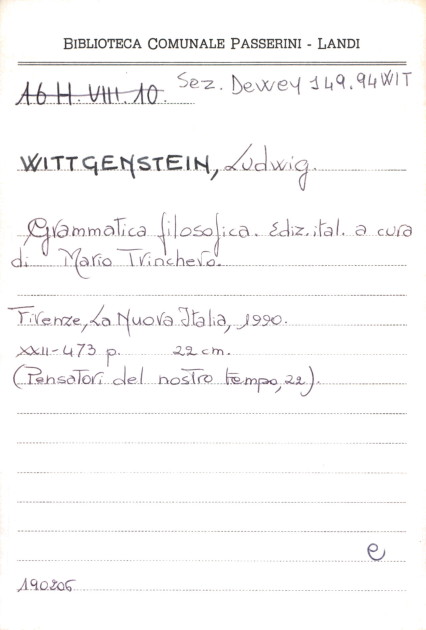 BIBLIOTECA COMUNALE PASSERINI - LANDI
16 H. VIII. 10. Sez. Dewey 149.94 WIT
WITTGENSTEIN, Ludwig.
Grammatica filosofica. Ediz. ital. a cura
di Mario Trinchero.
Firenze, La Nuova Italia, 1990.
XXII-473 p. 22 cm.
(Pensatori del nostro tempo, 22).
e
190206